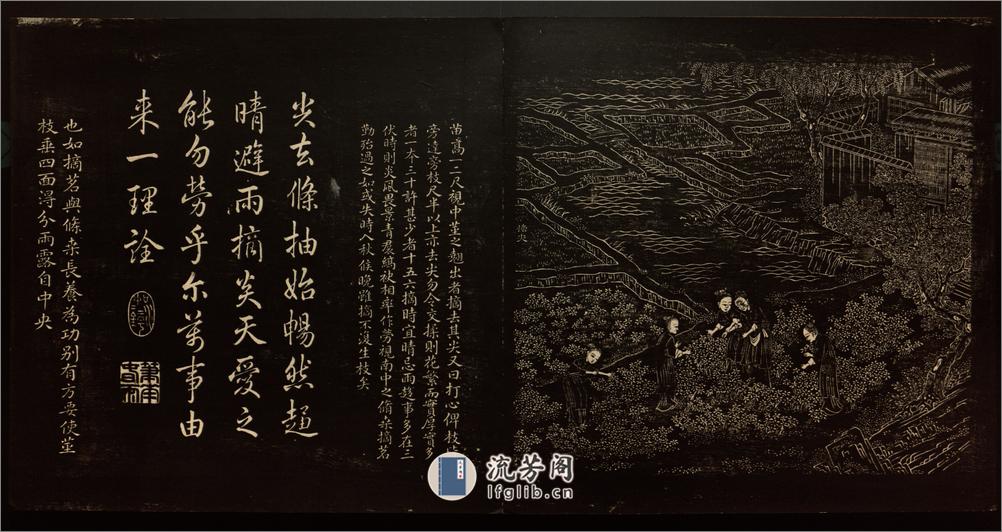 摘尖
苗高一二尺視中莖之翹出者摘去其尖又曰打心俾枝皆
旁達旁枝尺半以上亦去尖勿令交揉則花繁而實厚實多
者一本三十許甚少者十五六摘時宜晴忌雨趨事多在三
伏時則炎風畏景青裙縞袂相率作勞視南中之脩桑摘茗
勤殆過之如或失時入秋候晚雖摘不復生枝矣
尖去條抽始暢然趨
晴避雨摘炎天愛之
能勿勞乎尔萬事由
来一理詮
也如摘茗與條桑長養為功別有方要使莖
枝垂四面得分雨露自中央
流芳阁
lfglib.cn